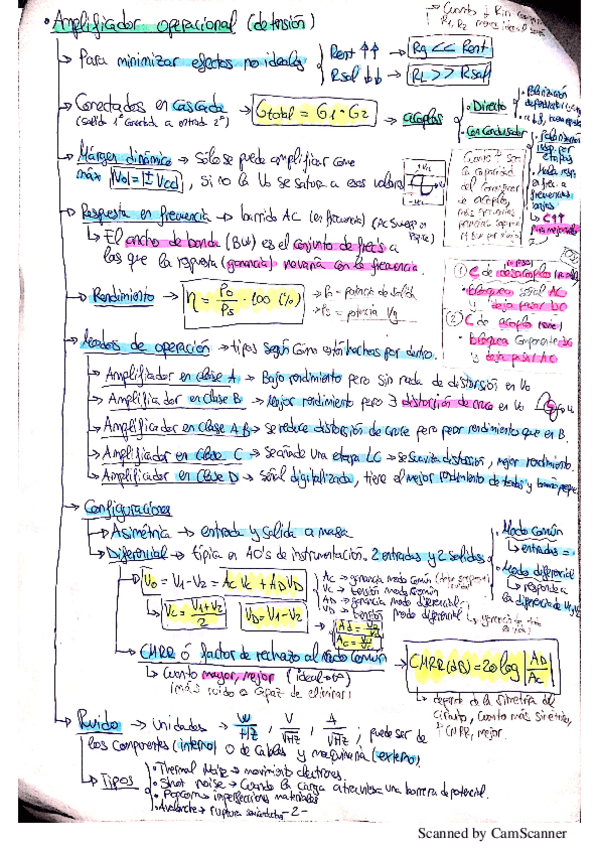 • Amplificador operacional (de tensión)
→ Para minimizar efectos no ideales
Rent ↑↑ → Rg << Rent
Rsal ↓↓ → RL >> Rsal
→ Conectados en cascada → Gtotal = G1 · G2 → acoplos
(salida 1º conectada a entrada 2º)
• Directo
• Con Condensador
→ Márgen dinámico → Sólo se puede amplificar como
máx |Vo| = |± Vcc|, si no la Vo se satura a esos valores
→ Respuesta en frecuencia → barrido AC (en frecuencia) (AC Sweep en
→ El ancho de banda (BW) es el conjunto de frecs a
las que la respuesta (ganancia) no varía con la frecuencia.
(1) C de desacoplo
• bloquea señal AC
y deja pasar DC
(2) C de acoplo
• bloquea componente DC
y deja pasar AC
→ Rendimiento → η = Po/Ps · 100 (%)
→ Po = potencia de salida
→ Modos de operación → tipos según como están hechos por dentro.
→ Amplificador en clase A → Bajo rendimiento pero sin nada de distorsión en Vo
→ Amplificador en clase B → Mejor rendimiento pero ∃ distorsión de cruce en Vo
→ Amplificador en clase AB → se reduce distorsión de cruce pero peor rendimiento que en B.
→ Amplificador en clase C → se añade una etapa LC → se suaviza distorsión, mejor rendimiento.
→ Amplificador en clase D → Señal digitalizada, tiene el mejor rendimiento de todos y
→ Configuraciones
→ Asimétrica → entrada y salida a masa
→ Diferencial → típica en AO's de instrumentación. 2 entradas y 2 salidas
• Modo Común
→ entradas =
• Modo diferencial
→ responde a
la diferencia de
Vo = V1 - V2 = Ac Vc + AD VD
Ac → ganancia modo común
Vc → tensión modo común
AD → ganancia modo diferencial
VD → tensión modo diferencial
→ Vc = V1 + V2 / 2
VD = V1 - V2
→ CMRR ó factor de rechazo al Modo Común
→ Cuanto mayor, mejor (ideal → ∞)
(más ruido es capaz de eliminar)
→ CMRR (dB) = 20 log |AD/Ac|
→ depende de la simetría del
circuito, cuanto más simétrico,
CMRR, mejor.
→ Ruido → Unidades → W/Hz, V/√Hz, A/√Hz, puede ser de
los componentes (interno) o de cables y maquinaria (externo)
→ Tipos
• Thermal Noise → movimiento electrones.
• Shot noise → Cuando la carga atraviesa una barrera de potencial.
• Popcorn → imperfecciones materiales
• Avalanche → ruptura semiconductor
- 2 -
Scanned by CamScanner